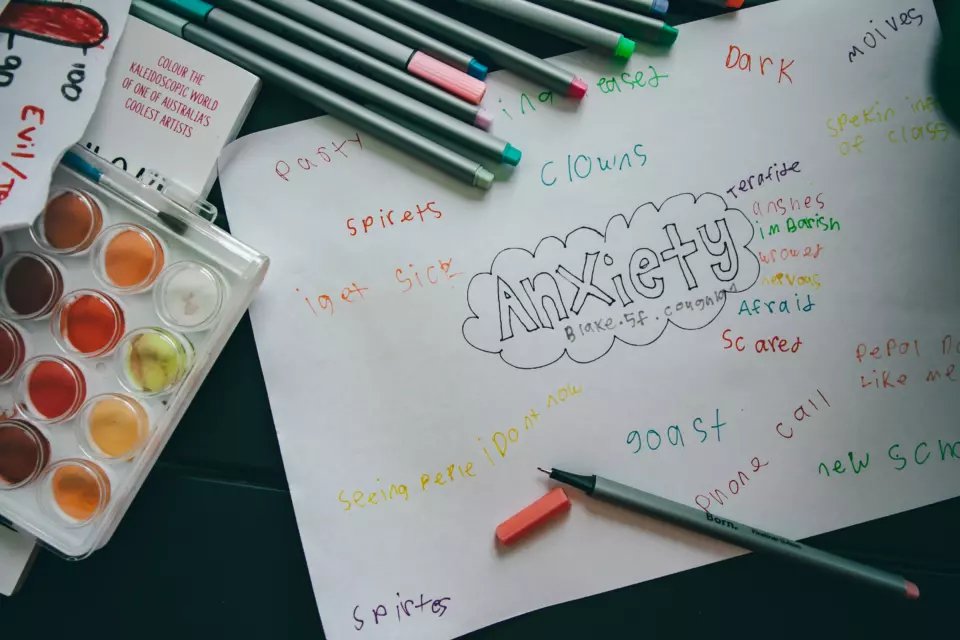 Evil/
COLOUR THE
KALEIDOSCOPIC WORLD
OF ONE OF AUSTRALIA'S
COOLEST ARTISTS
moives
Dark
party
clowns
spirets
iget sick
Anxiety
Blake.5f.
Terafite
anshes
imBarish
wrower
nervous
Afraid
Scared
spekin in
of class
pepol
Like me
seeing peple iDont now
goast
phone call
new Scho
Born.
spirtes